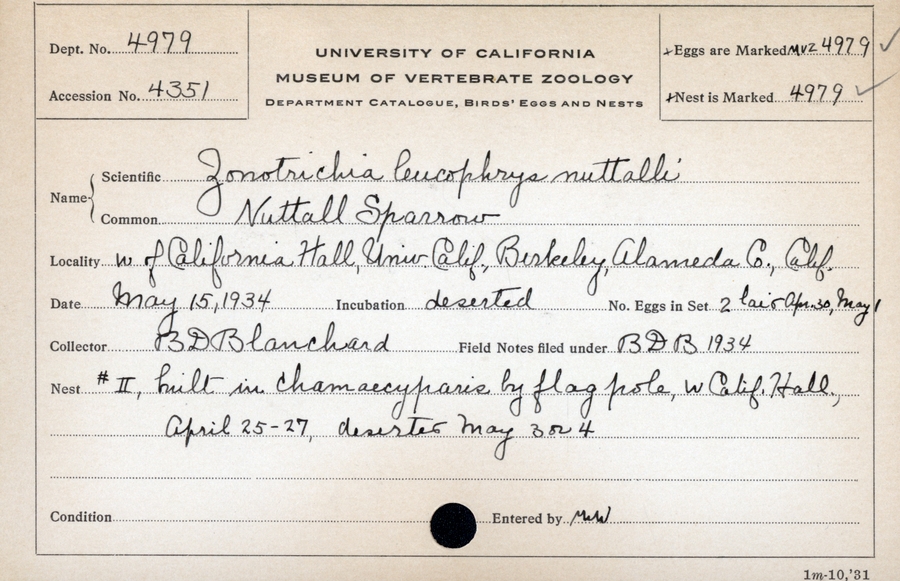 Dept. No. 4979
Accession No. 4351
UNIVERSITY OF CALIFORNIA
MUSEUM OF VERTEBRATE ZOOLOGY
DEPARTMENT CATALOGUE, BIRDS' EGGS AND NESTS
+Eggs are Marked MVZ 4979 ✓
+Nest is Marked 4979 ✓
Name { Scientific Zonotrichia leucophrys nuttalli
Common Nuttall Sparrow
Locality w of California Hall, Univ. Calif., Berkeley, Alameda Co., Calif.
Date May 15, 1934 Incubation deserted No. Eggs in Set 2 laid Apr. 30, May 1
Collector B D Blanchard Field Notes filed under B D B 1934
Nest #II, built in chamaecyparis by flag pole, w Calif. Hall.,
April 25-27, deserted May 3 or 4
Condition Entered by MW
1m-10,'31